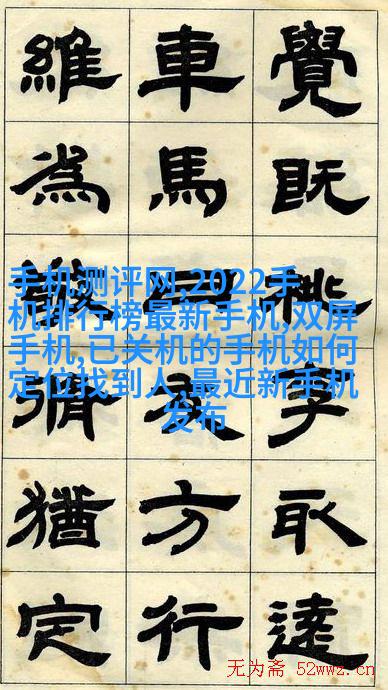 覺既李取逺
車馬方行
維為猶定
手机测评网,2022手
机排行榜最新手机,双屏
手机,已关机的手机如何
定位找到人,最近新手机
发布
无为斋 52wwz.cn